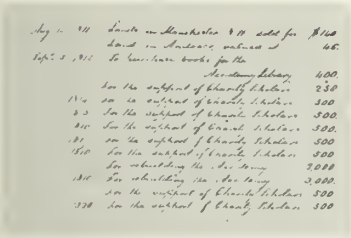 Aug 1. 811 Lands in Manchester N H sold for $140
Land in Andover, valued at 45.
Sept. 5, To purchase books for the
Academy Library 400.
For the support of Charity Scholars 250
For the support of Charity Scholars 500
For the support of Charity Scholars 500.
For the support of Charity Scholars 500.
For the support of Charity Scholars 500
For the support of Charity Scholars 500
For rebuilding the Academy 2,000
For rebuilding the Academy 3,000.
For the support of Charity Scholars 500
For the support of Charity Scholars 500